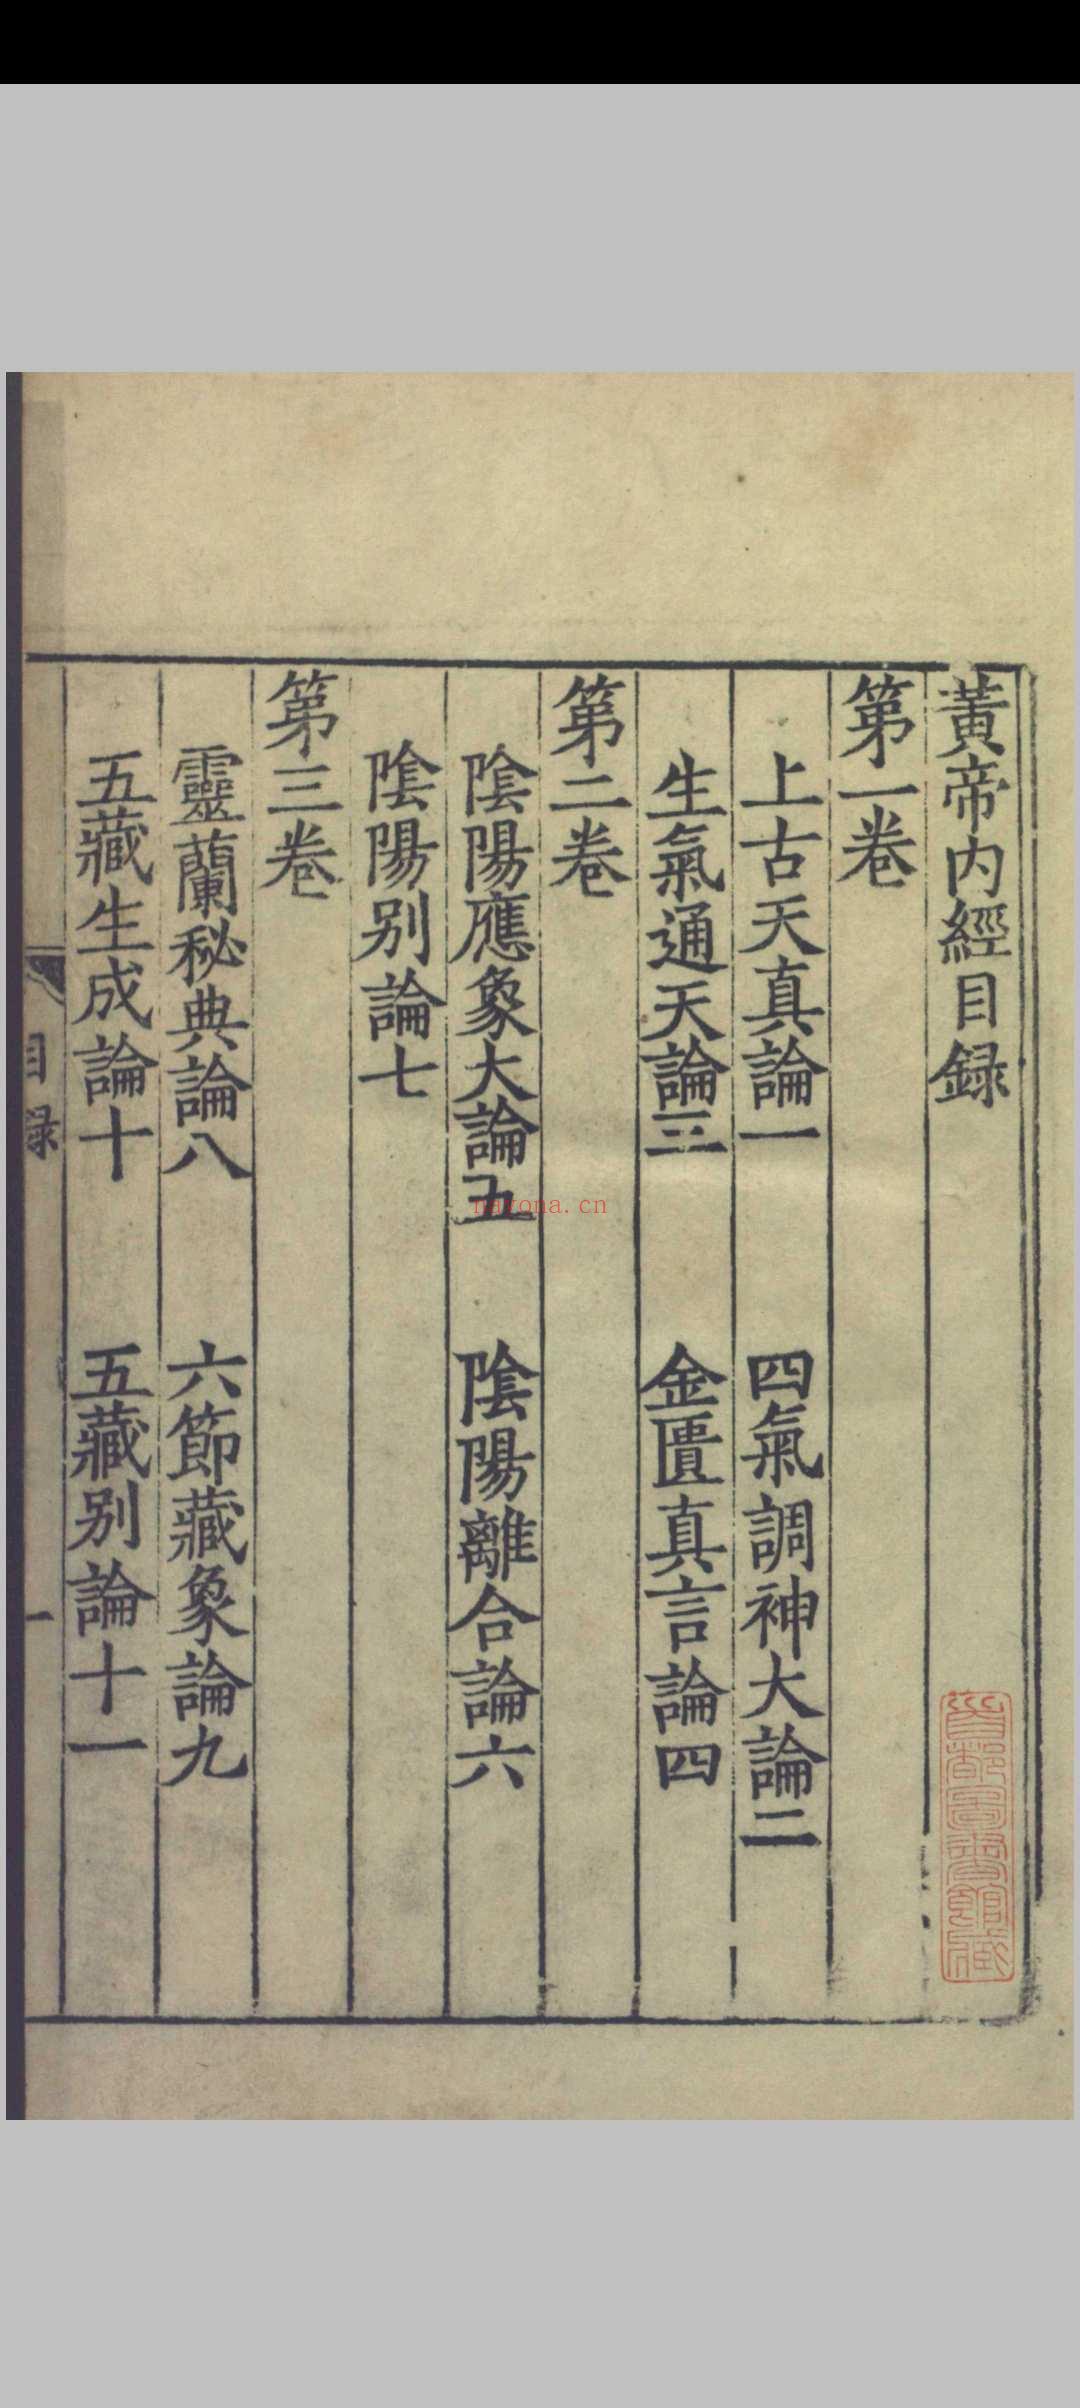 黃帝内經目録
第一卷
上古天真論一 四氣調神大論二
生氣通天論三 金匱真言論四
第二卷
陰陽應象大論五 陰陽離合論六
陰陽别論七
第三卷
靈蘭秘典論八 六節藏象論九
五藏生成論十 五藏别論十一
目録 一
首都圖書館藏
nayona.cn